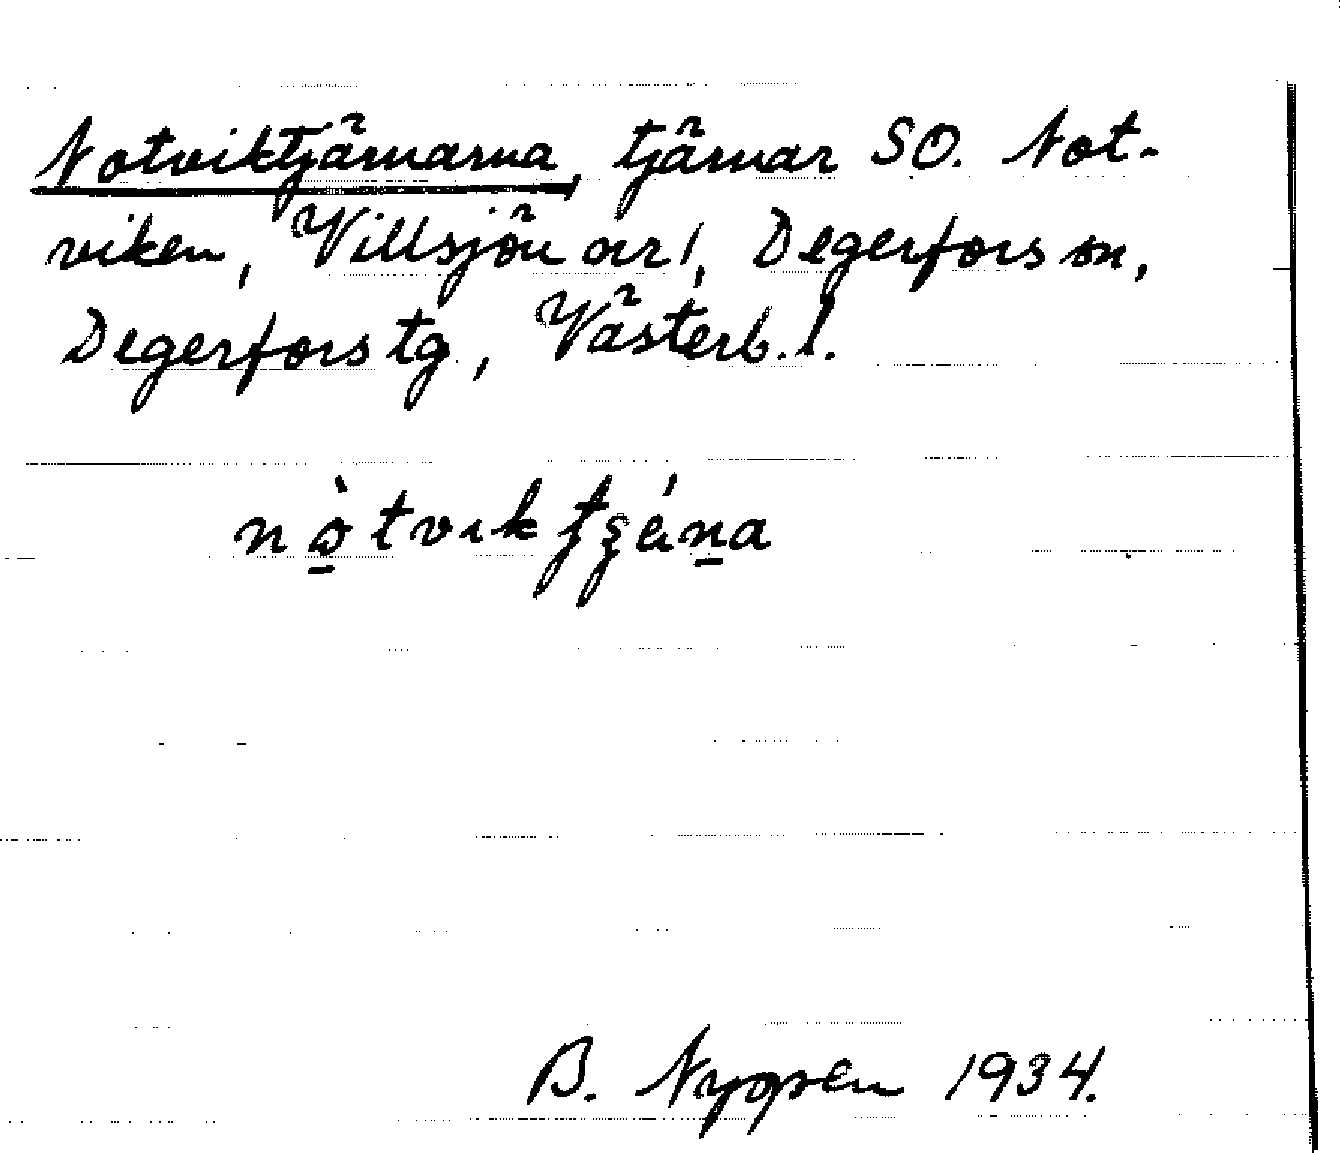 Notviktjärnarna, tjärnar SO. Not-
viken, Villsjön avr!, Degerfors sn,
Degerfors tg, Västerb. l.
B. Nygren 1934.